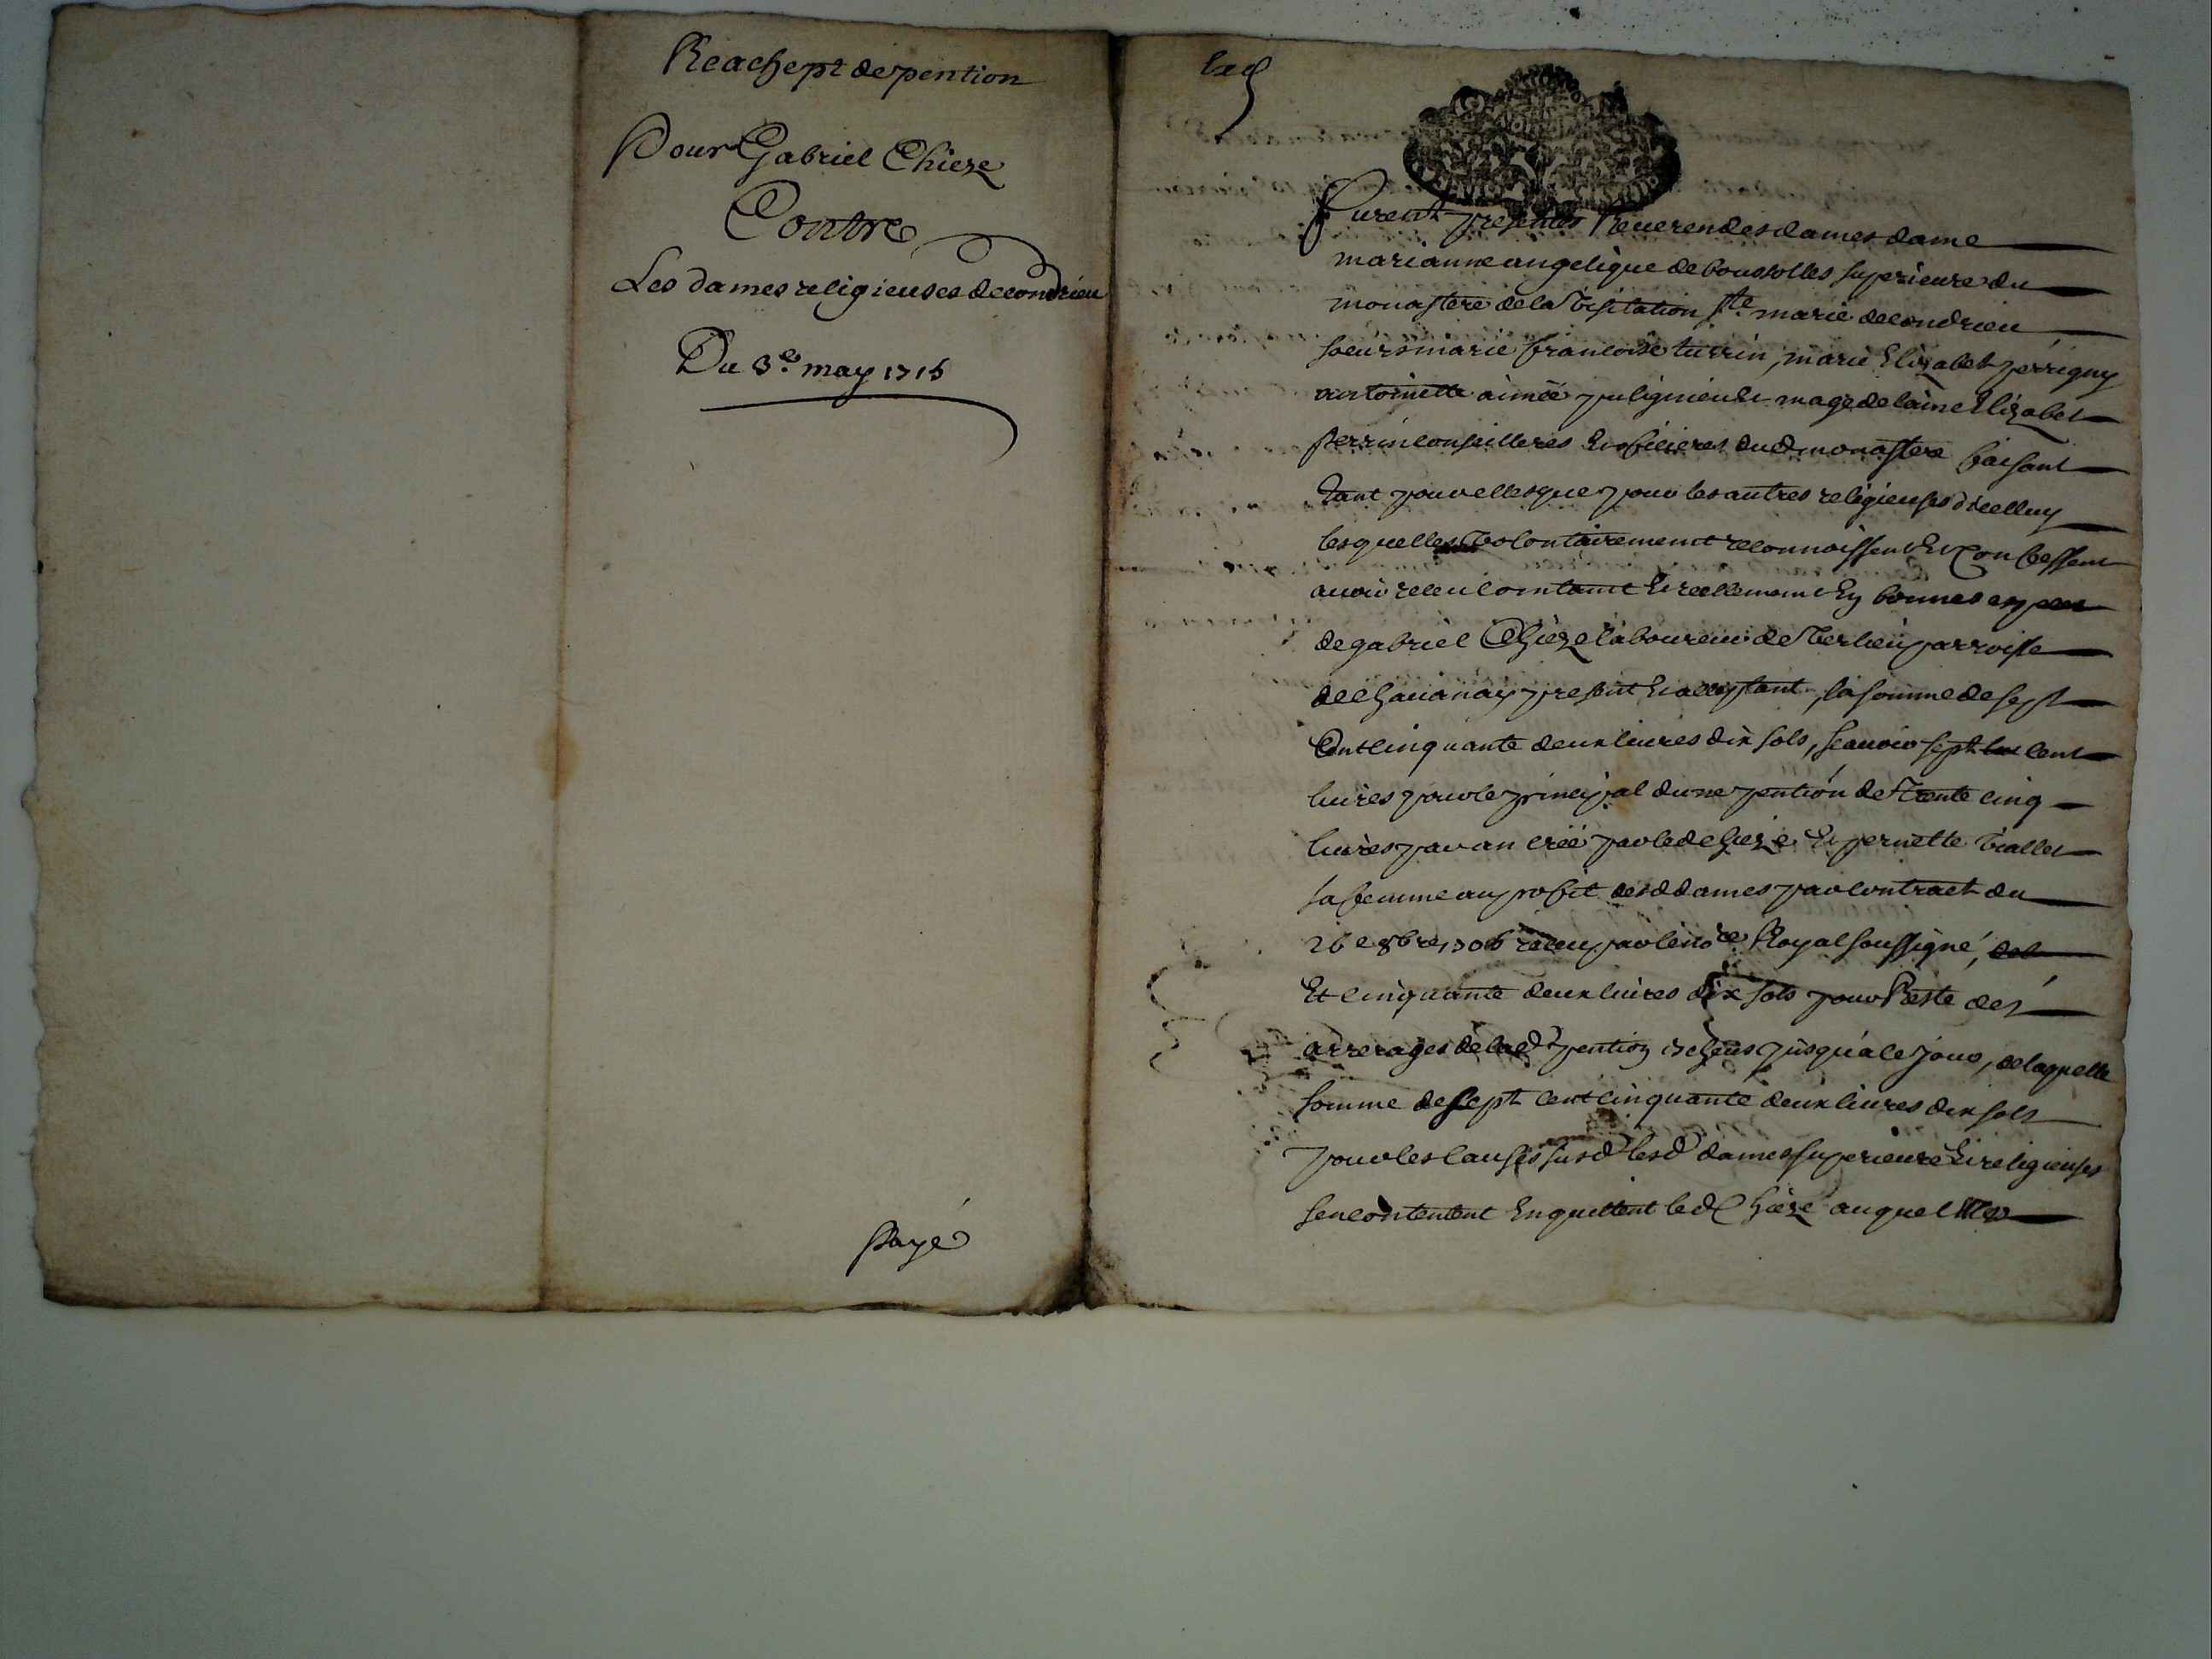 Reachept de pention
Pour Gabriel Chieze
Contre
Les dames religieuses de condrieu
Du 3e may 1715
payé
Furent presentes Reuerendes dames dame
marianne angelique de boussolles superieure du
monastere de la visitation ste marie de condrieu
soeurs marie francoise turrin, marie Elizabet perrigny
antoinette aimée pulignieu et magdelaine Elizabet
perrin conseilleres et officieres dud monastere faisant
tant pour elles que pour les autres religieuses d'icelluy
lesquelles volontairement reconnoissent et Confessent
auoir receu comtamt et reellement En bonnes especes
de gabriel Chieze laboureur de Verlieu parroisse
de chauanay present et acceptant, la somme de sept
Cent cinquante deux liures dix sols, scauoir sept cent
liures pour le principal dune pention de trente cinq
liures par an créé par led chieze Et pernette viallet
sa femme au profit desd dames par contract du
26e 8bre 1706 receu par le nore Royal soussigné,
Et cinquante deux liures dix sols pour Reste des
arrerages de lad pention Echeus jusqu'a ce jour, de laquelle
somme de sept cent cinquante deux liures dix sols
pour les causes susd lesd dames superieure Et religieuses
sen contentent En quittent led Chieze auquel